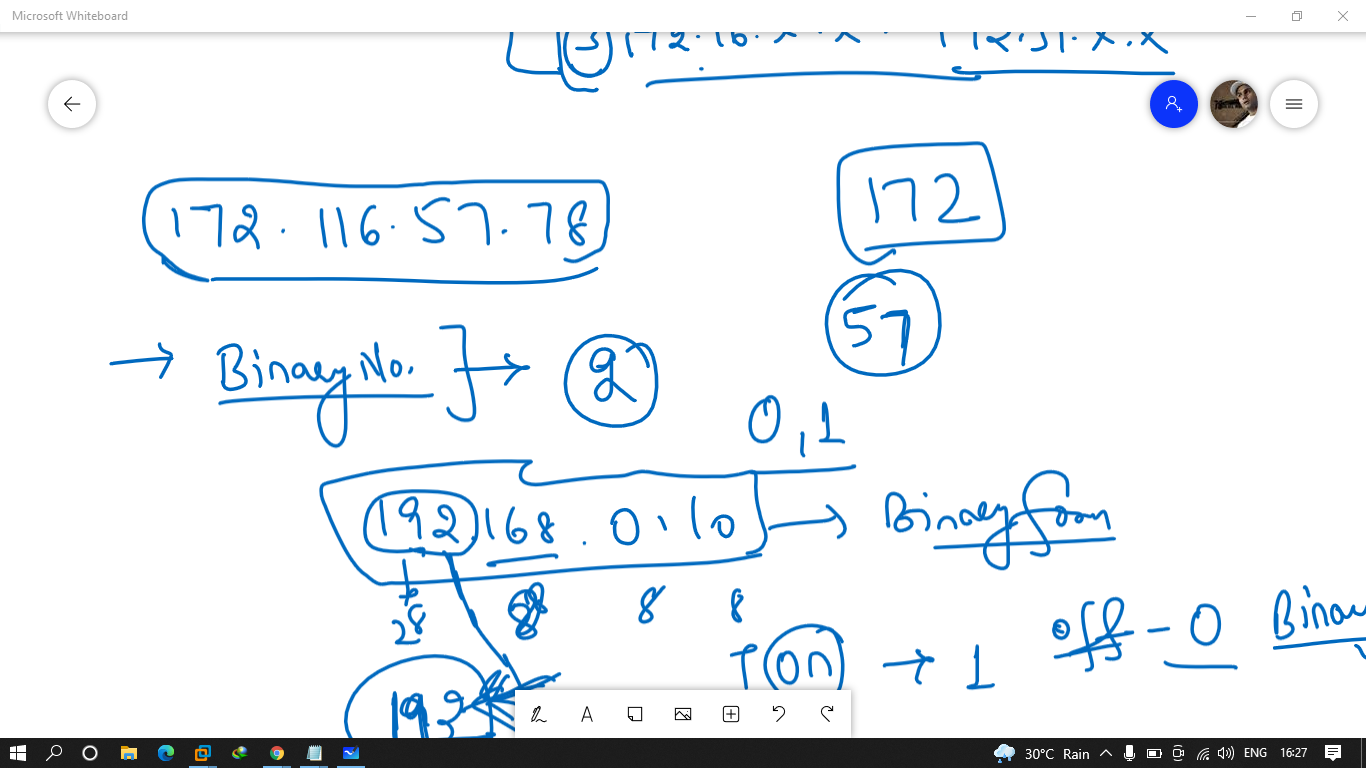 Microsoft Whiteboard
3 172.16.x.x - 172.31.x.x
172.116.57.78
172
57
→ Binary No. } → 2
0,1
192.168.0.10 → Binary form
2^8 8 8 8
on → 1 off - 0 Binar
192
30°C Rain ENG 16:27